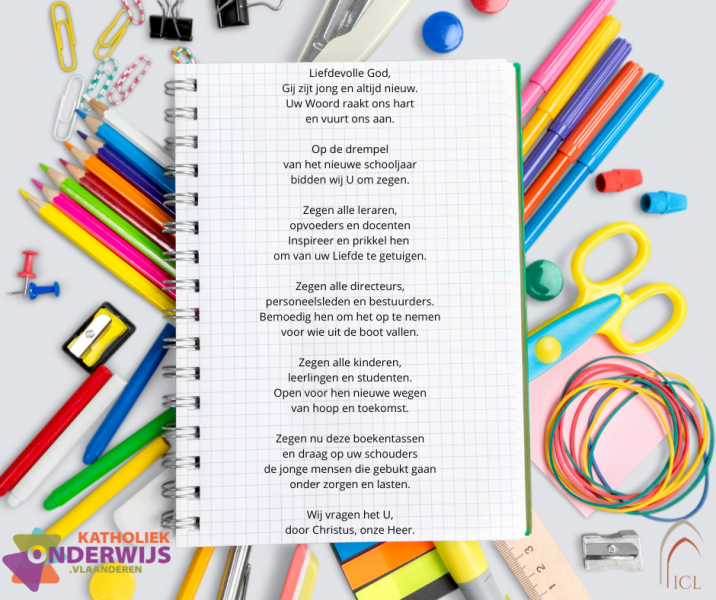 Liefdevolle God,
Gij zijt jong en altijd nieuw.
Uw Woord raakt ons hart
en vuurt ons aan.
Op de drempel
van het nieuwe schooljaar
bidden wij U om zegen.
Zegen alle leraren,
opvoeders en docenten
Inspireer en prikkel hen
om van uw Liefde te getuigen.
Zegen alle directeurs,
personeelsleden en bestuurders.
Bemoedig hen om het op te nemen
voor wie uit de boot vallen.
Zegen alle kinderen,
leerlingen en studenten.
Open voor hen nieuwe wegen
van hoop en toekomst.
Zegen nu deze boekentassen
en draag op uw schouders
de jonge mensen die gebukt gaan
onder zorgen en lasten.
Wij vragen het U,
door Christus, onze Heer.
KATHOLIEK
ONDERWIJS
.VLAANDEREN
1 2 3
ICL